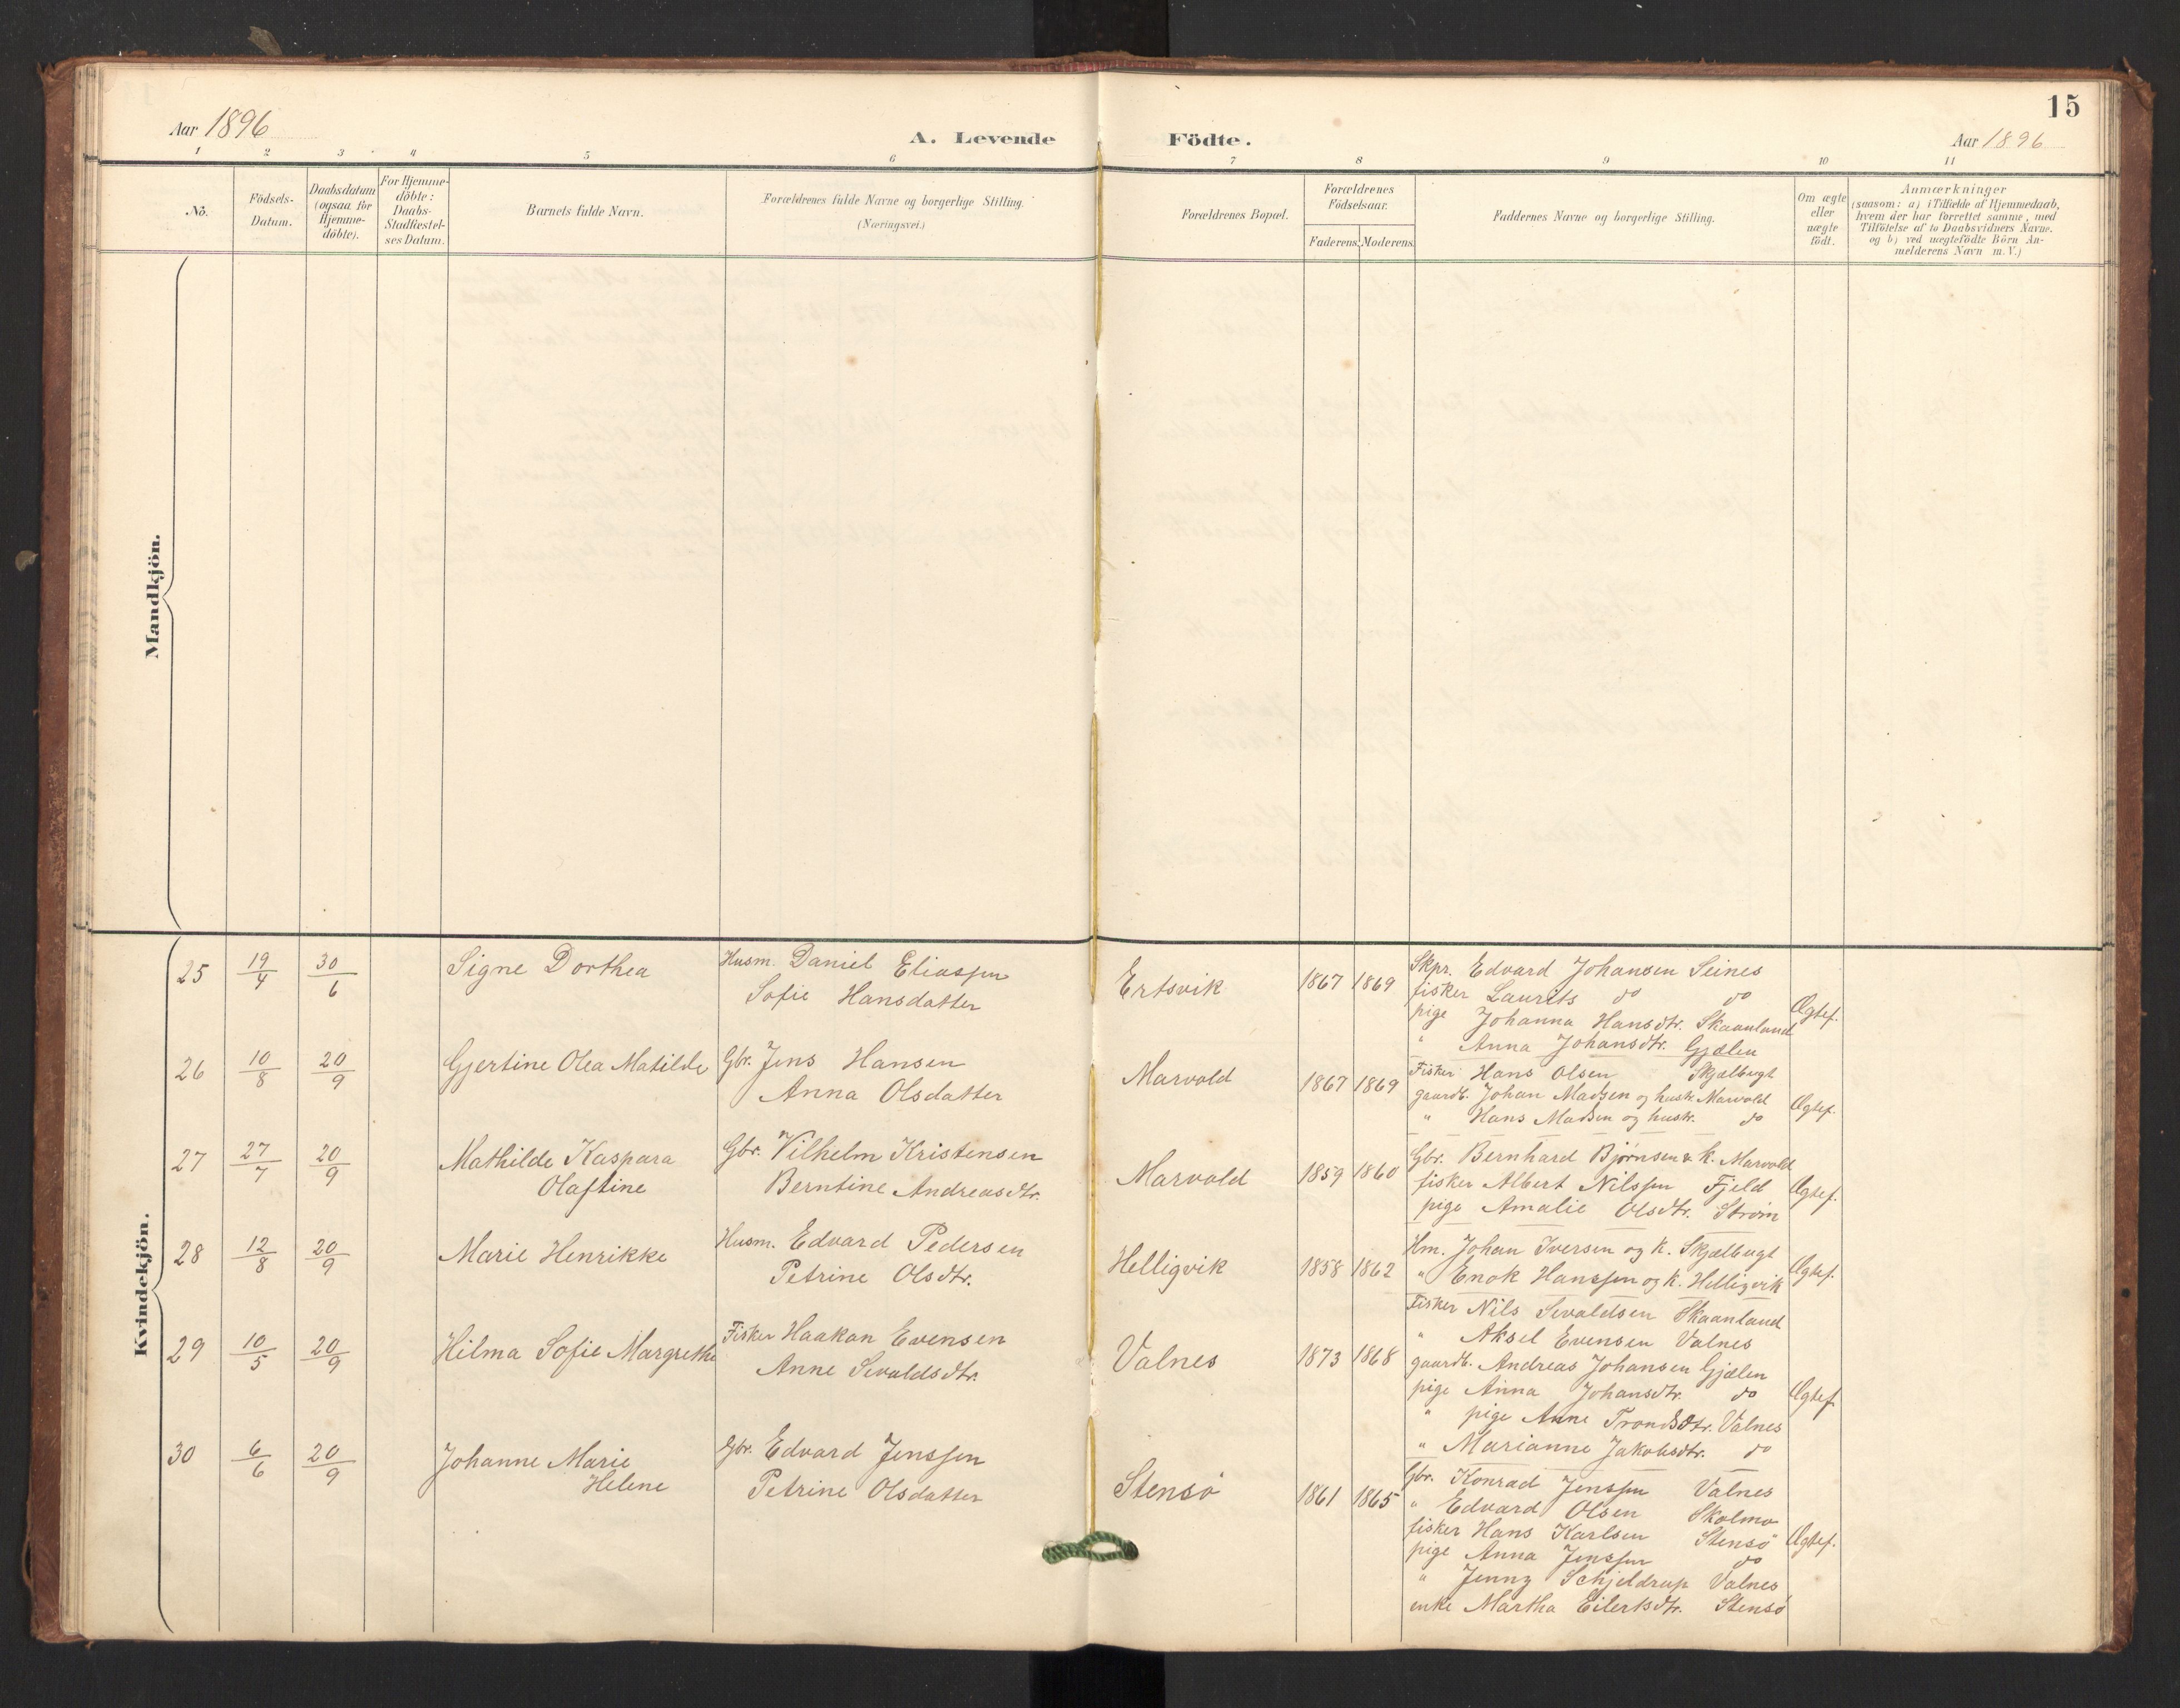 15
Aar 1896
A. Levende Födte.
Aar 1896
1 2 3 4 5 6 7 8 9 10 11
No.
Födsels-
Datum.
Daabsdatum
(ogsaa for
Hjemme-
döbte).
For Hjemme-
döbte:
Daabs-
Stadfæstel-
ses Datum.
Barnets fulde Navn.
Forældrenes fulde Navne og borgerlige Stilling.
(Næringsvei.)
Forældrenes Bopæl.
Forældrenes
Födselsaar.
Faderens. Moderens.
Faddernes Navne og borgerlige Stilling.
Om ægte
eller
uægte
födt.
Anmærkninger
(saasom: a) i Tilfælde af Hjemmedaab,
hvem der har forrettet samme, med
Tilföielse af to Daabsvidners Navne.
og b) ved uægtefödte Börn An-
melderens Navn m.V.)
Mandkjön.
Kvindekjön.
25 19/4 30/6 Signe Dorthea
Husm. Daniel Eliassen
Sofie Hansdatter
Ertsvik 1867 1869
Skpr. Edvard Johansen Seines
fisker Laurits do do
pige Johanna Hansdtr. Skaanland
" Anna Johansdtr. Gjælen
Ægtef.
26 10/8 20/9 Gjertine Olea Matilde
Gbr. Jens Hansen
Anna Olsdatter
Marvold 1867 1869
Fisker Hans Olsen Skjælbugt
gaardb. Johan Madsen og hustr. Marvold
" Hans Madsen og hustr. do
Ægtef.
27 27/7 20/9 Mathilde Kaspara
Olaftine
Gbr. Vilhelm Kristensen
Berntine Andreasdtr.
Marvold 1859 1860
Gbr. Bernhard Bjørnsen & K. Marvold
fisker Albert Nilssen Fjeld
pige Amalie Olsdtr. Strøm
Ægtef.
28 12/8 20/9 Marie Henrikke
Husm. Edvard Pedersen
Petrine Olsdtr.
Helligvik 1858 1862
Hm. Johan Iversen og K. Skjælbugt
" Enok Hanssen og K. Helligvik
Ægtef.
29 10/5 20/9 Hilma Sofie Margrethe
Fisker Haakon Evensen
Anne Sevaldsdtr.
Valnes 1873 1868
Fisker Nils Sevaldsen Skaanland
" Aksel Evensen Valnes
gaardb. Andreas Johansen Gjælen
pige Anna Johansdtr. do
" pige Anne Trondsdtr. Valnes
" Marianne Jakobsdtr. do
Ægtef
30 6/6 20/9 Johanne Marie
Helene
Gbr. Edvard Jenssen
Petrine Olsdatter
Stensö 1861 1865
Gbr. Konrad Jenssen Valnes
" Edvard Olsen Skolmo
fisker Hans Karlsen Stensö
pige Anna Jenssen do
" Jenny Schjeldrup Valnes
enke Martha Eilertsdtr. Stensö
Ægtef.